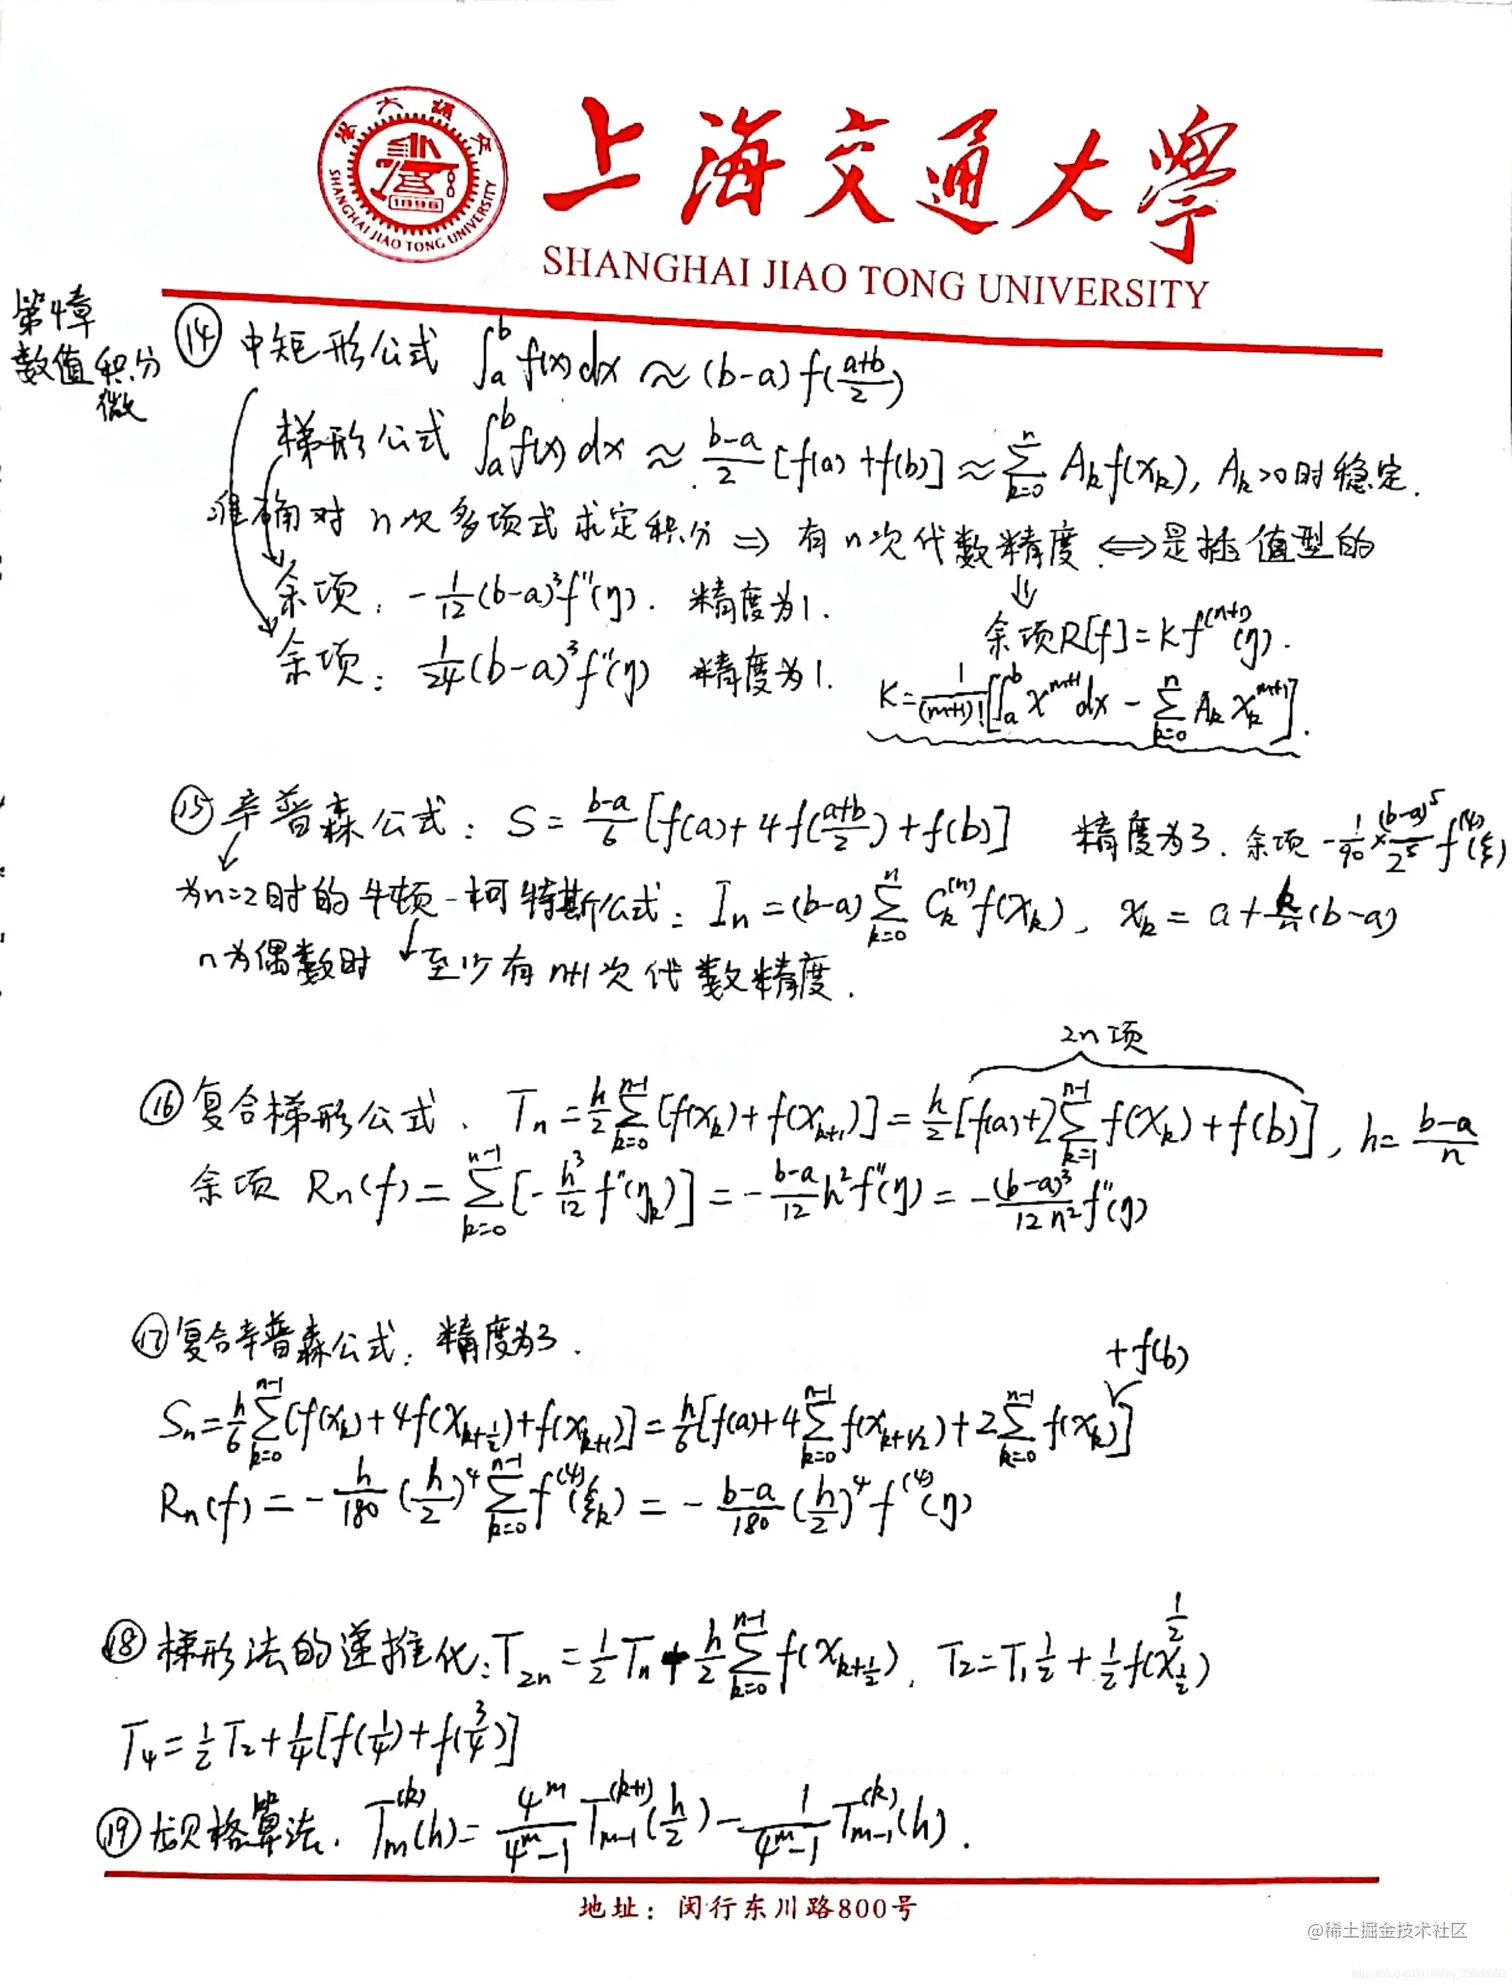 上海交通大學
SHANGHAI JIAO TONG UNIVERSITY
SHANGHAI JIAO TONG UNIVERSITY
1896
第4章
数值积分
微
⑭ 中矩形公式 ∫_a^b f(x)dx ≈ (b-a) f((a+b)/2)
梯形公式 ∫_a^b f(x)dx ≈ (b-a)/2 [f(a)+f(b)] ≈ ∑_{k=0}^n A_k f(x_k), A_k>0时稳定.
准确对n次多项式求定积分 ⇒ 有n次代数精度. ⇔ 是插值型的
⇓
余项: -1/12 (b-a)^3 f''(η). 精度为1.
余项R[f]=K f^{(n+1)}(η).
余项: 1/24 (b-a)^3 f''(η) 精度为1.
K= 1/(m+1)! [∫_a^b x^{m+1} dx - ∑_{k=0}^n A_k x_k^{m+1}].
⑮ 辛普森公式: S= (b-a)/6 [f(a)+4f((a+b)/2)+f(b)] 精度为3. 余项 -1/90 × (b-a)^5/2^5 f^{(4)}(ξ)
为n=2时的牛顿-柯特斯公式: I_n = (b-a) ∑_{k=0}^n C_k^{(n)} f(x_k), x_k = a + k/n (b-a)
n为偶数时 至少有n+1次代数精度.
2n项
⑯ 复合梯形公式. T_n = h/2 ∑_{k=0}^{n-1} [f(x_k)+f(x_{k+1})] = h/2 [f(a)+2∑_{k=1}^{n-1} f(x_k)+f(b)], h= (b-a)/n
余项 R_n(f) = ∑_{k=0}^{n-1} [-h^3/12 f''(η_k)] = -(b-a)/12 h^2 f''(η) = -(b-a)^3/(12n^2) f''(η)
⑰ 复合辛普森公式: 精度为3.
+f(b)
S_n = h/6 ∑_{k=0}^{n-1} [f(x_k)+4f(x_{k+1/2})+f(x_{k+1})] = h/6 [f(a)+4∑_{k=0}^{n-1} f(x_{k+1/2})+2∑_{k=0}^{n-1} f(x_k)]
R_n(f) = -h/180 (h/2)^4 ∑_{k=0}^{n-1} f^{(4)}(ξ_k) = -(b-a)/180 (h/2)^4 f^{(4)}(η)
⑱ 梯形法的递推化: T_{2n} = 1/2 T_n + h/2 ∑_{k=0}^{n-1} f(x_{k+1/2}), T_2=T_1 1/2 + 1/2 f(x_{1/2}) 1/2
T_4 = 1/2 T_2 + 1/4 [f(1/4)+f(3/4)]
⑲ 龙贝格算法. T_m^{(k)}(h) = 4^m/(4^m-1) T_{m-1}^{(k+1)}(h/2) - 1/(4^m-1) T_{m-1}^{(k)}(h).
地址：闵行东川路800号
@稀土掘金技术社区